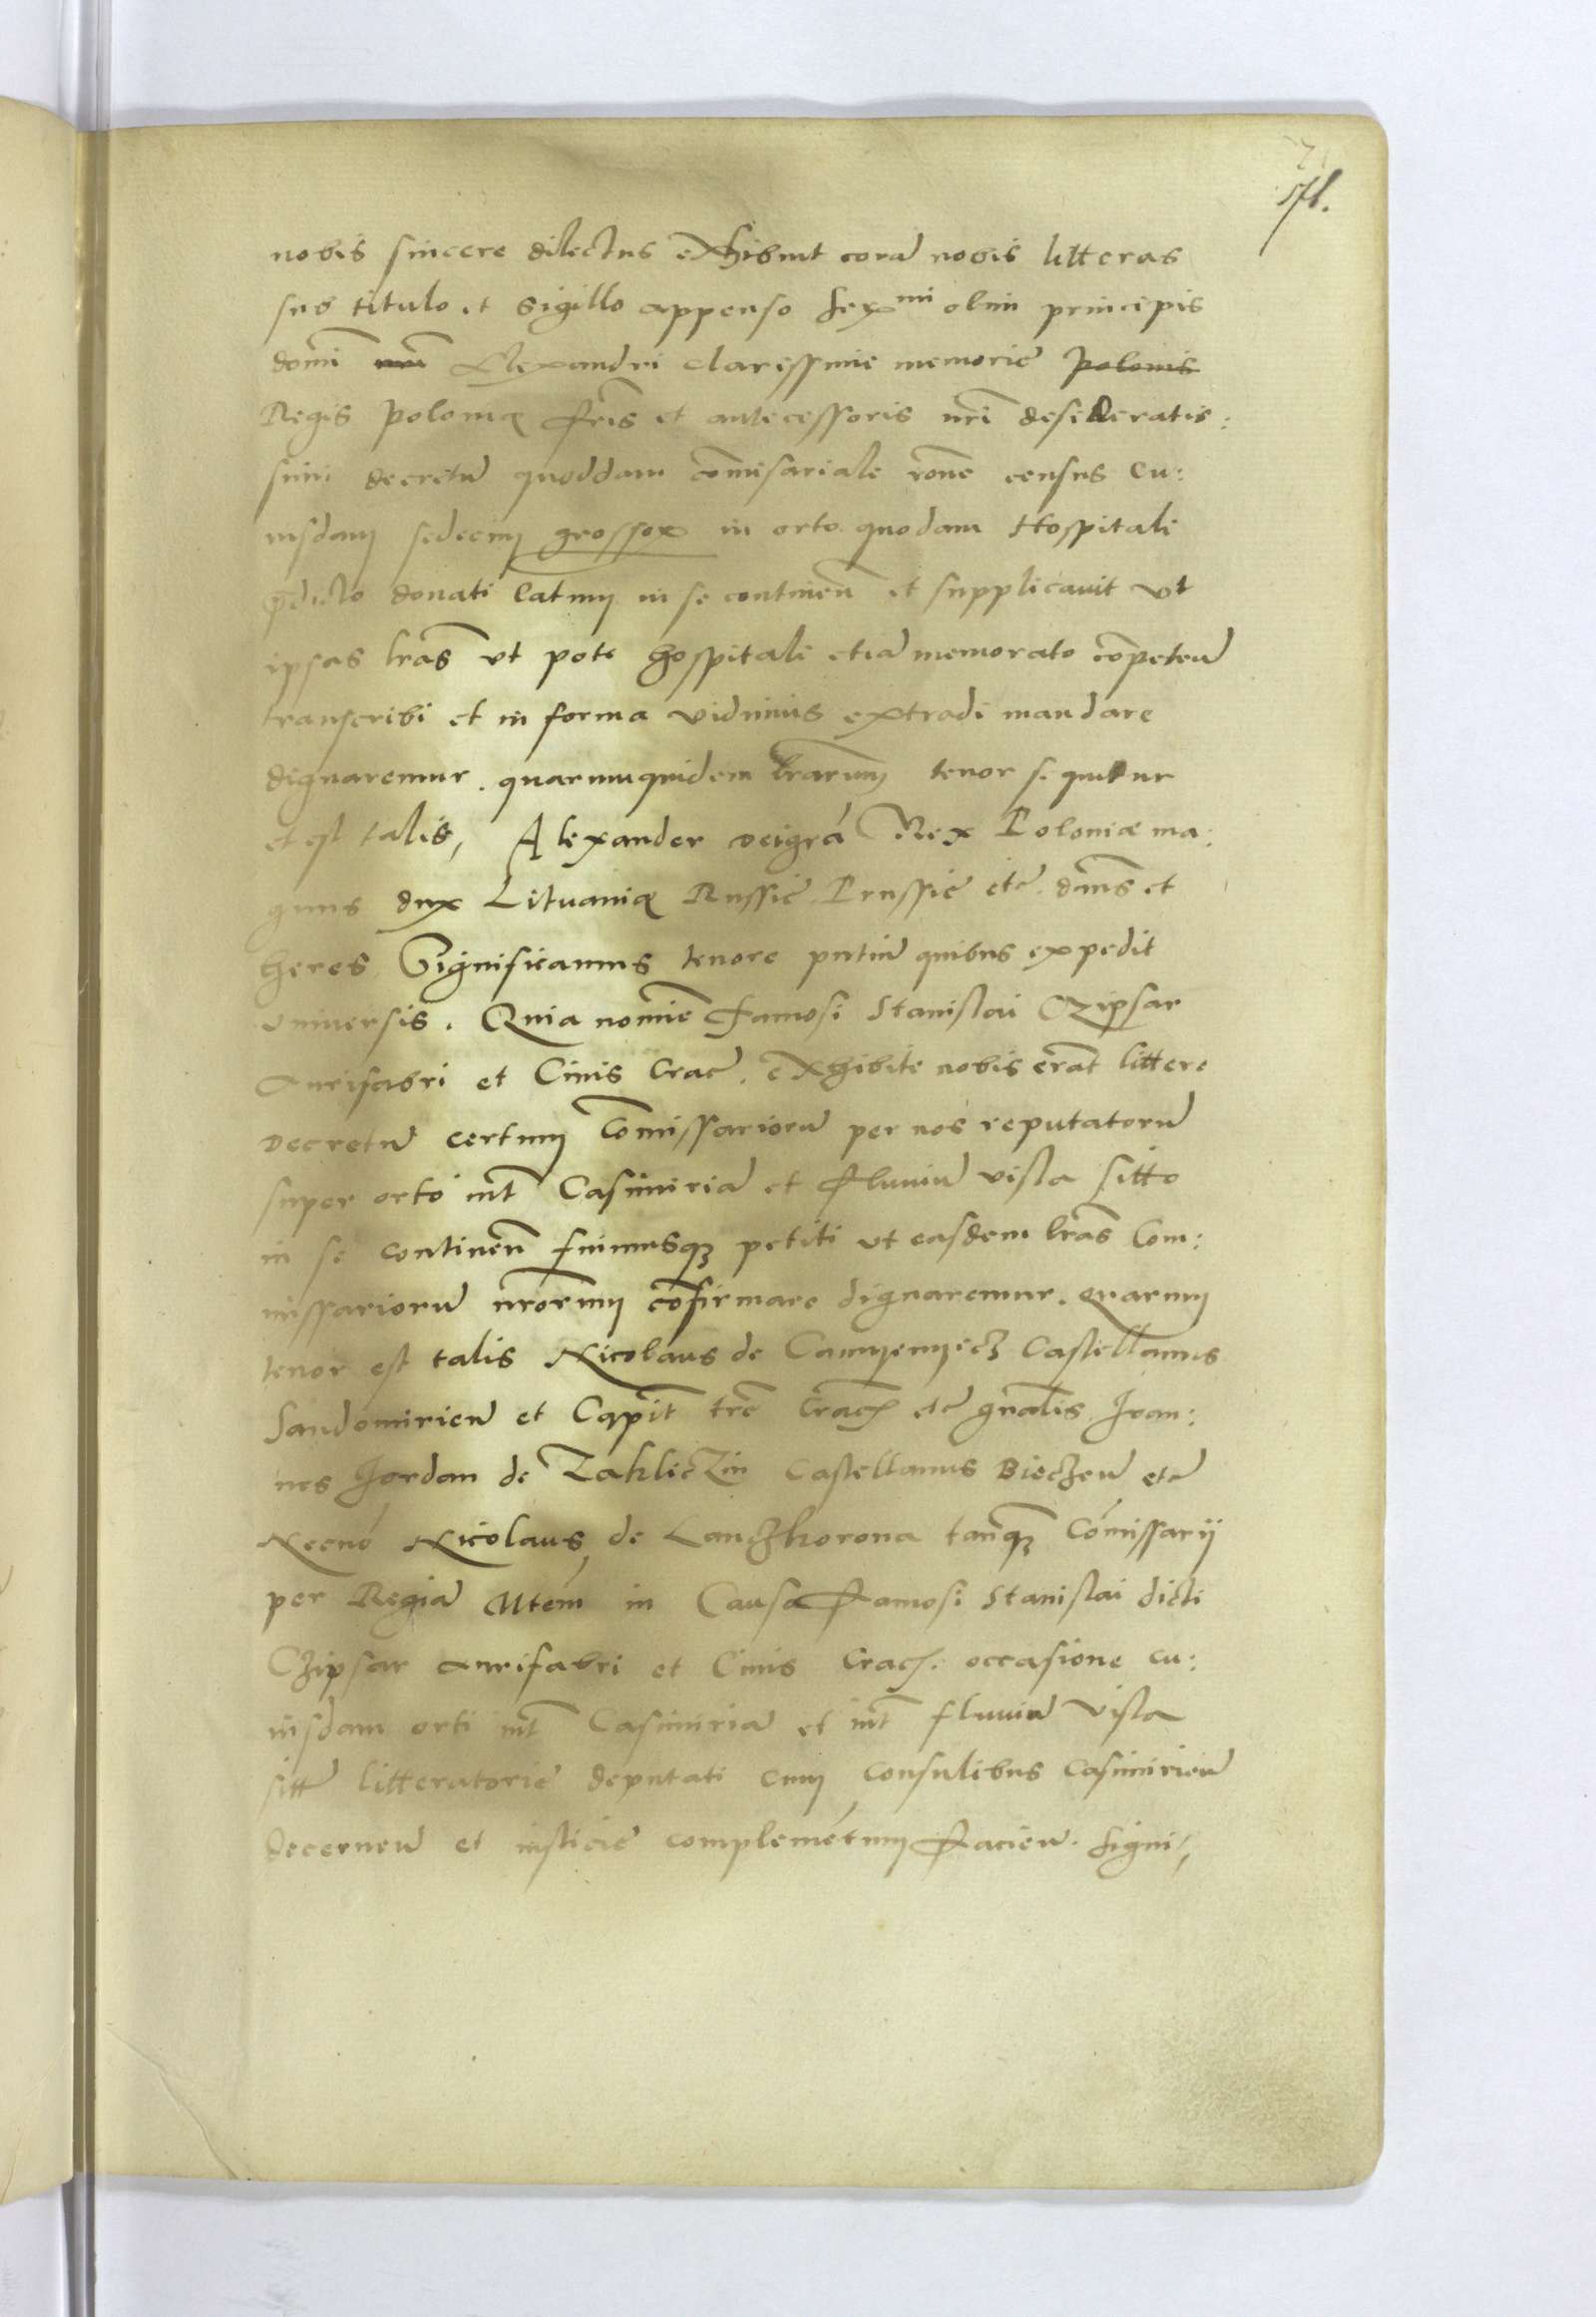 71.
nobis sincere dilectus exhibuit corā nobis litteras
sub titulo et sigillo appenso Serᵐⁱ olim principis
domī Alexandri clarissime memorie Polonie
Regis Poloniæ fr̄is et antecessoris nr̄i desideratis:
simi decretū quoddam cōmisariale rōne census cu:
iusdam sedecim grossoꝝ in orto quodam Hospitali
p̄dicto donati latum in se continen̄ et supplicauit vt
ipsas lr̄as vt pote hospitali etiā memorato cōpeten̄
transcribi et in forma vidimus extradi mandare
dignaremur. quarumquidem lr̄arum tenor sequitur
et est talis, Alexander dei gr̄a Rex Poloniæ ma:
gnus dux Lituaniæ Russie Prussie etc. dn̄s et
heres Significamus tenore pn̄tiū quibus expedit
vniversis. Quia nomīe famosi Stanislai Czipsar
Aurifabri et Ciuis Crac̄. exhibite nobis erāt littere
Decretū certum Cōmissariorū per nos reputatorū
super orto int̄ Casimiriā et fluuiū visla sitto
in se continen̄ fuimusqꝫ petiti vt easdem lr̄as Com:
missariorū nr̄orum cōfirmare dignaremur. quarum
tenor est talis Nicolaus de Camyenyecz Castellanus
Sandomirien̄ et Capit̄ trē Crac̄h etc gn̄alis Joan:
nes Jordan de Zakliczin Castellanus Bieczen̄ etc
Necnō Nicolaus de Lanczkorona tanqꝫ Cōmissarij
per Regiā Mtem̄ in Causa famosi Stanislai dicti
Czipsar aurifabri et Ciuis Crach. occasione cu:
iusdam orti int̄ Casimiriā et int̄ fluuiū Visla
sitt̄ litteratorie deputati cum consulibus Casimirien̄
decernen̄ et iusticie complemētum facien̄. signi,